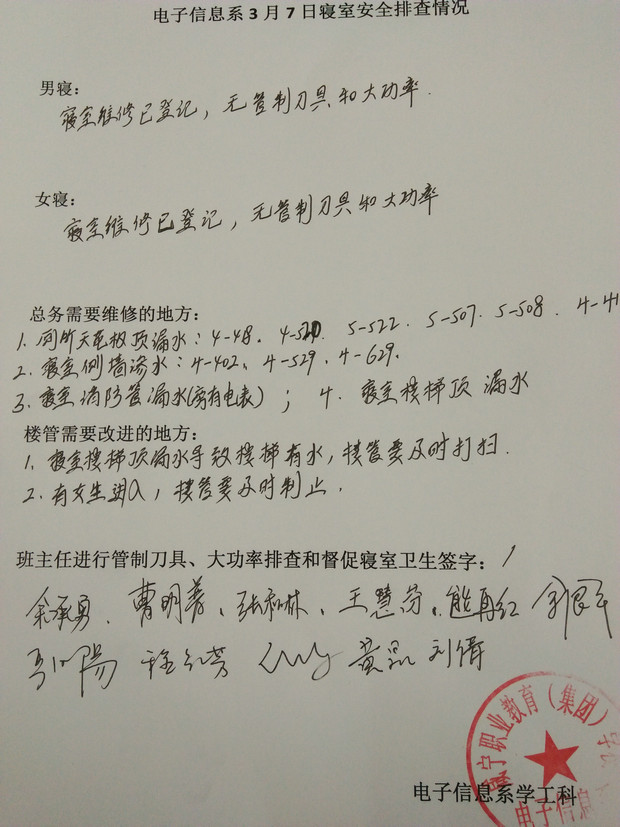 电子信息系3月7日寝室安全排查情况
男寝：
寝室维修已登记，无管制刀具和大功率.
女寝：
寝室维修已登记，无管制刀具和大功率
总务需要维修的地方：
1. 厕所天花板顶漏水：4-48. 4-520 5-522. 5-507. 5-508. 4-41
2. 寝室侧墙渗水：4-402、4-529、4-629.
3. 寝室消防管漏水(旁有电表)；4. 寝室楼梯顶漏水
楼管需要改进的地方：
1. 寝室楼梯顶漏水导致楼梯有水，楼管要及时打扫.
2. 有女生进入，楼管要及时制止.
班主任进行管制刀具、大功率排查和督促寝室卫生签字：
余承勇、曹明善、张和林、王慧芬、熊再红
黄晶 刘倩
职业教育（集团）学
电子信息系学工科
电子信息